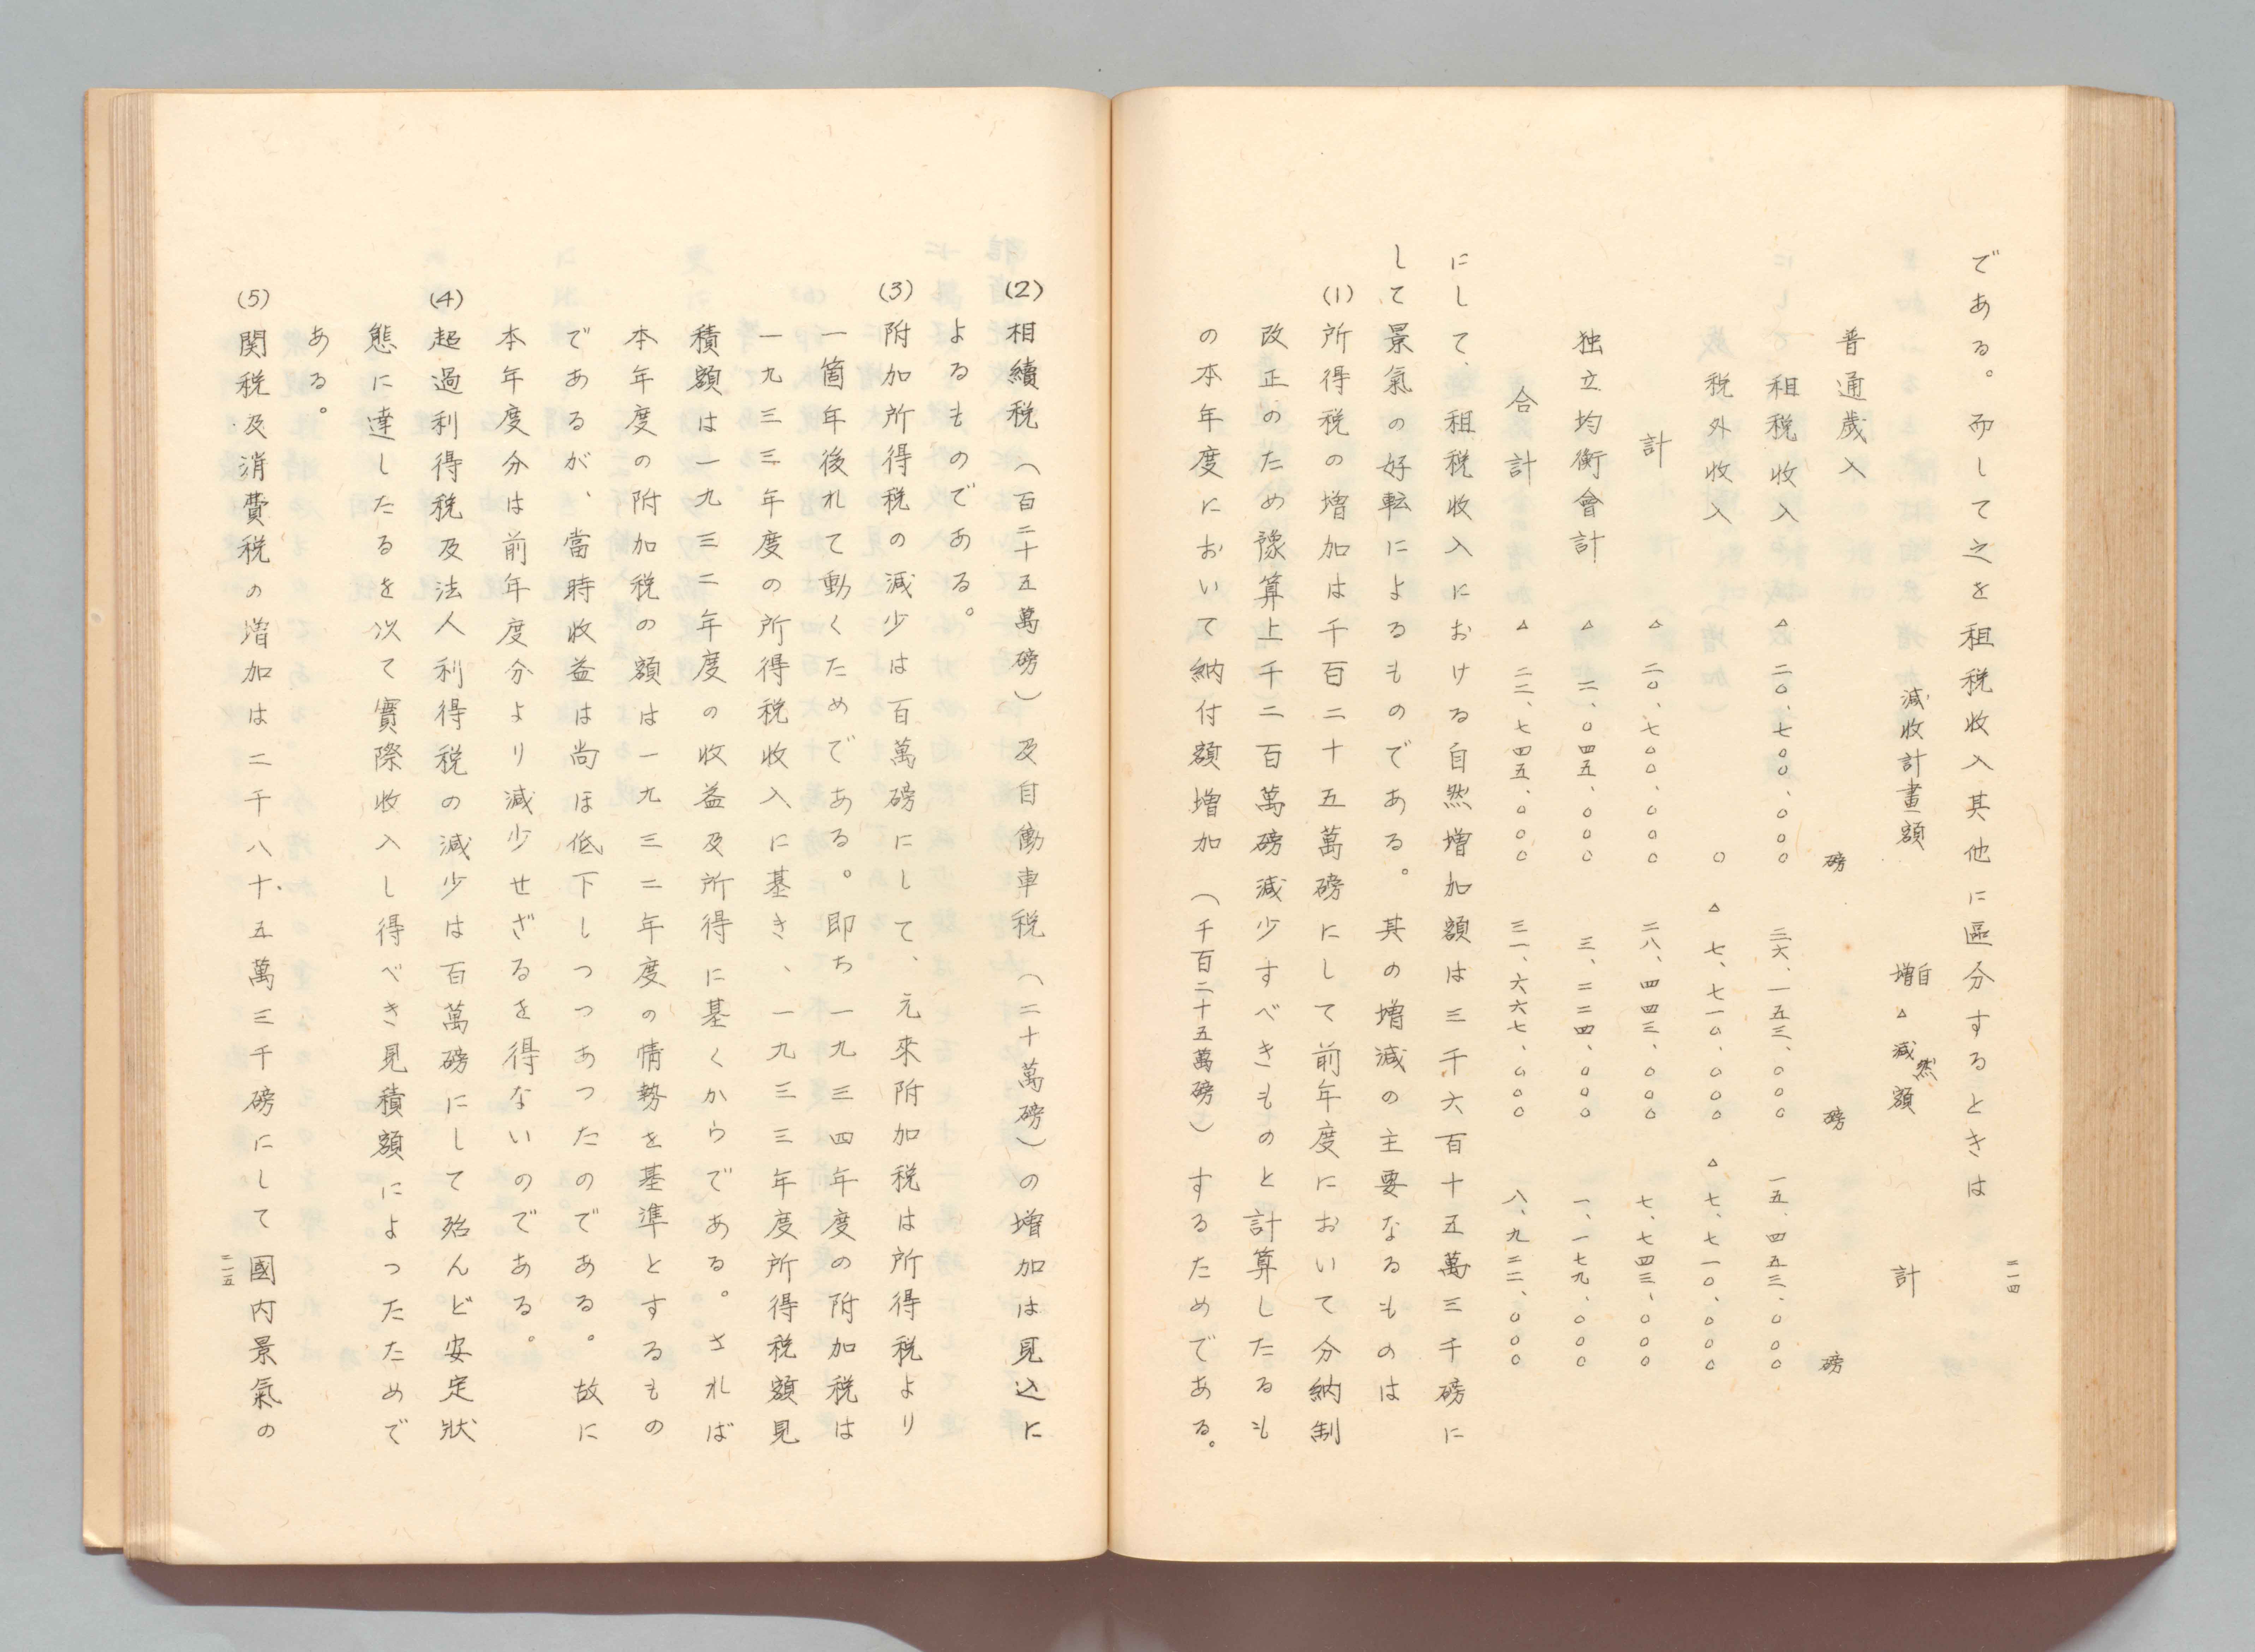 である。而して之を租税收入其他に區分するときは
減收計畫額 自然増△減額 計
磅 磅 磅
普通歲入
租税收入 △二〇、七〇〇、〇〇〇 三六、一五三、〇〇〇 一五、四五三、〇〇〇
税外收入 〇 △七、七一〇、〇〇〇 △七、七一〇、〇〇〇
計 △二〇、七〇〇、〇〇〇 二八、四四三、〇〇〇 七、七四三、〇〇〇
独立均衡會計 △二、〇四五、〇〇〇 三、二二四、〇〇〇 一、一七九、〇〇〇
合計 △二二、七四五、〇〇〇 三一、六六七、〇〇〇 八、九二二、〇〇〇
にして、租税收入における自然増加額は三千六百十五萬三千磅に
して景氣の好転によるものである。其の増減の主要なるものは
(1)所得税の増加は千百二十五萬磅にして前年度において分納制
改正のため豫算上千二百萬磅減少すべきものと計算したるも
の本年度において納付額増加(千百二十五萬磅)するためである。
二一四
(2)相續税(百二十五萬磅)及自働車税(二十萬磅)の増加は見込に
よるものである。
(3)附加所得税の減少は百萬磅にして、元來附加税は所得税より
一箇年後れて動くためである。即ち一九三四年度の附加税は
一九三三年度の所得税收入に基き、一九三三年度所得税額見
積額は一九三二年度の收益及所得に基くからである。されば
本年度の附加税の額は一九三二年度の情勢を基準とするもの
であるが、當時收益は尚ほ低下しつつあつたのである。故に
本年度分は前年度分より減少せざるを得ないのである。
(4)超過利得税及法人利得税の減少は百萬磅にして殆んど安定狀
態に達したるを以て實際收入し得べき見積額によつたためで
ある。
(5)関税及消費税の増加は二千八十五萬三千磅にして國内景氣の
二一五